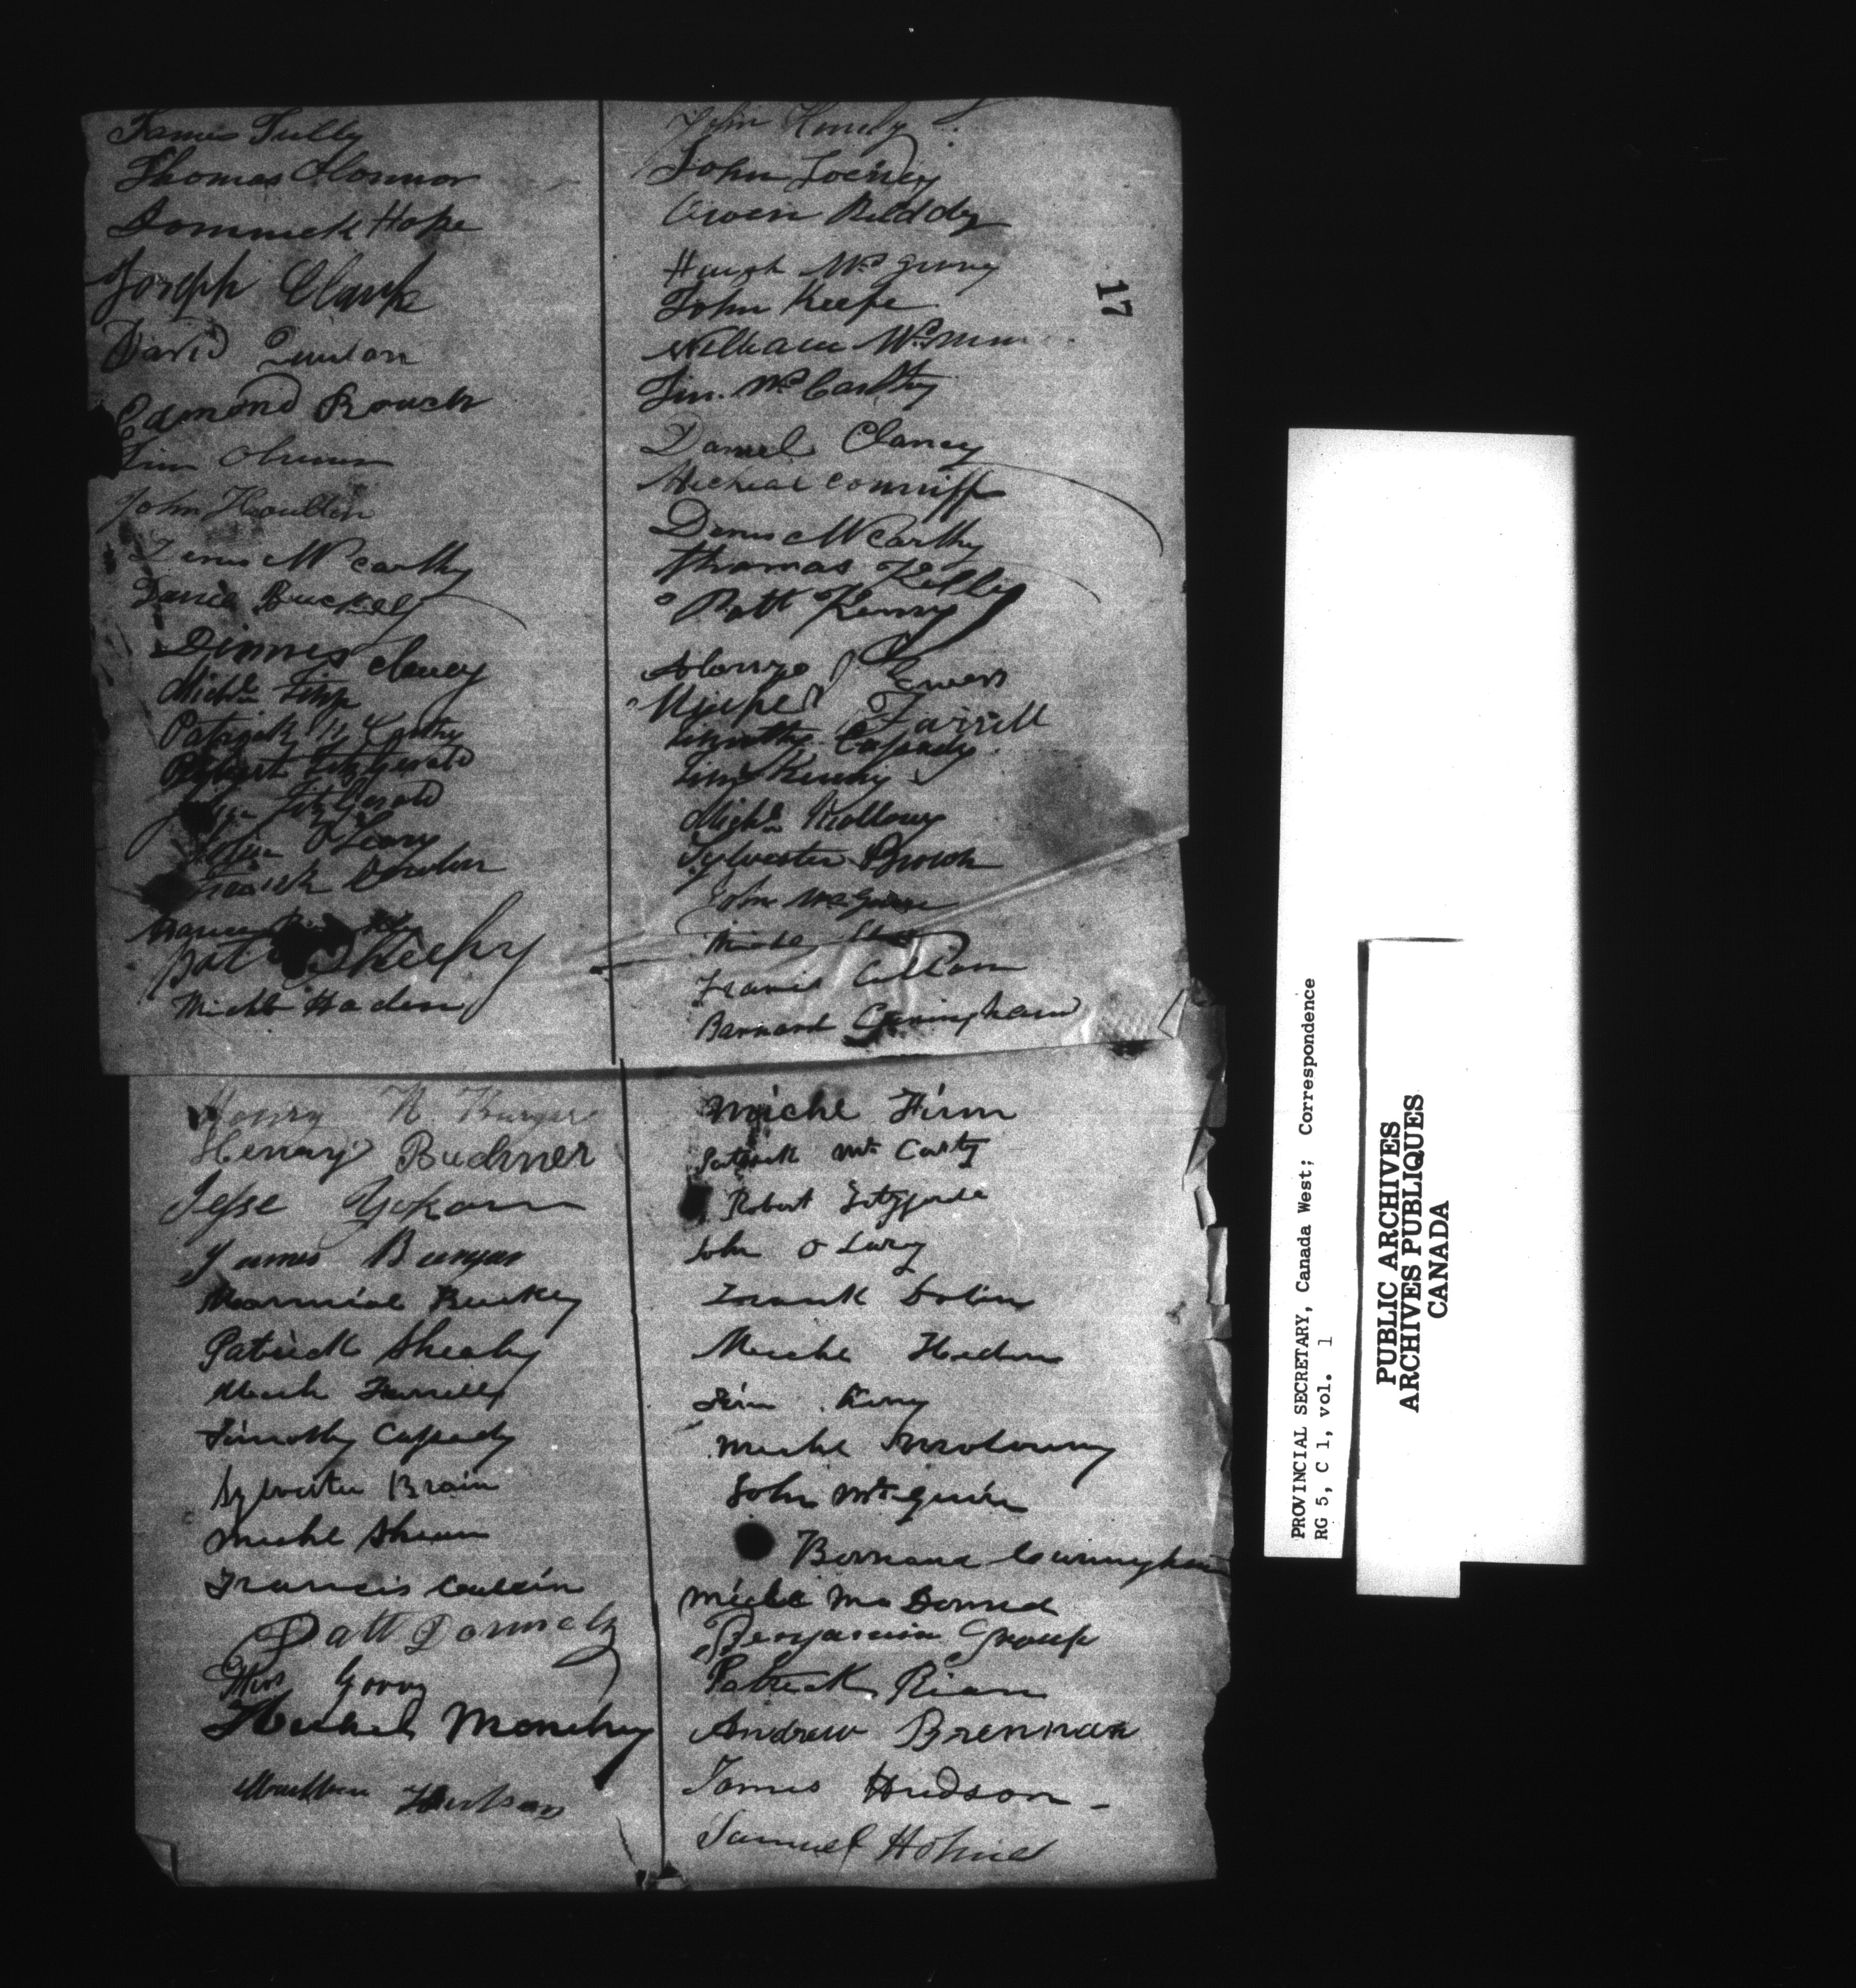 James Tully
Thomas OConnor
Dominick Hope
Joseph Clark
David Quinlan
Edmond Roach
Tim Obrien
John Houlton
Denis McCarthy
Daniel Buckely
Dinnis Clancy
Michl Finn
Patrick Mc Carthy
Robert FitzGerald
John FitzGerald
John OLeary
Pat Sheehy
Michl Haden
John
John Toomey
Owen Ruddy
Hugh
John Keefe
William
Tim. McCarthy
Daniel Clancy
Micheal Conniff
Denis McCarthy
Thomas Kelly
Patt Kenny
Alonzo Ewers
Farrell
Timothy Cassady
Tim Kenny
Michl Mollowy
Sylvester Brown
John McGuire
Francis
Barnard Cuningham
Henry
Henry Buchner
Jesse Yokom
James Bunyan
Patrick Sheehy
Farrelly
Timothy Cassady
Sylvester Brain
Michl Shean
Francis
Patt Donnely
Washburn
Michl Finn
Patrick Mc Carty
Robert
John O Lary
Frank Dolin
Michl Hedin
Tim Kenny
Michl
John McGuire
Bernard Cunningham
Michl McDonnel
Benjamin Group
Patrick Rian
Andrew Brennan
James Hudson -
Samuel Holmes
17
PROVINCIAL SECRETARY, Canada West; Correspondence
RG 5, C 1, vol. 1
PUBLIC ARCHIVES
ARCHIVES PUBLIQUES
CANADA